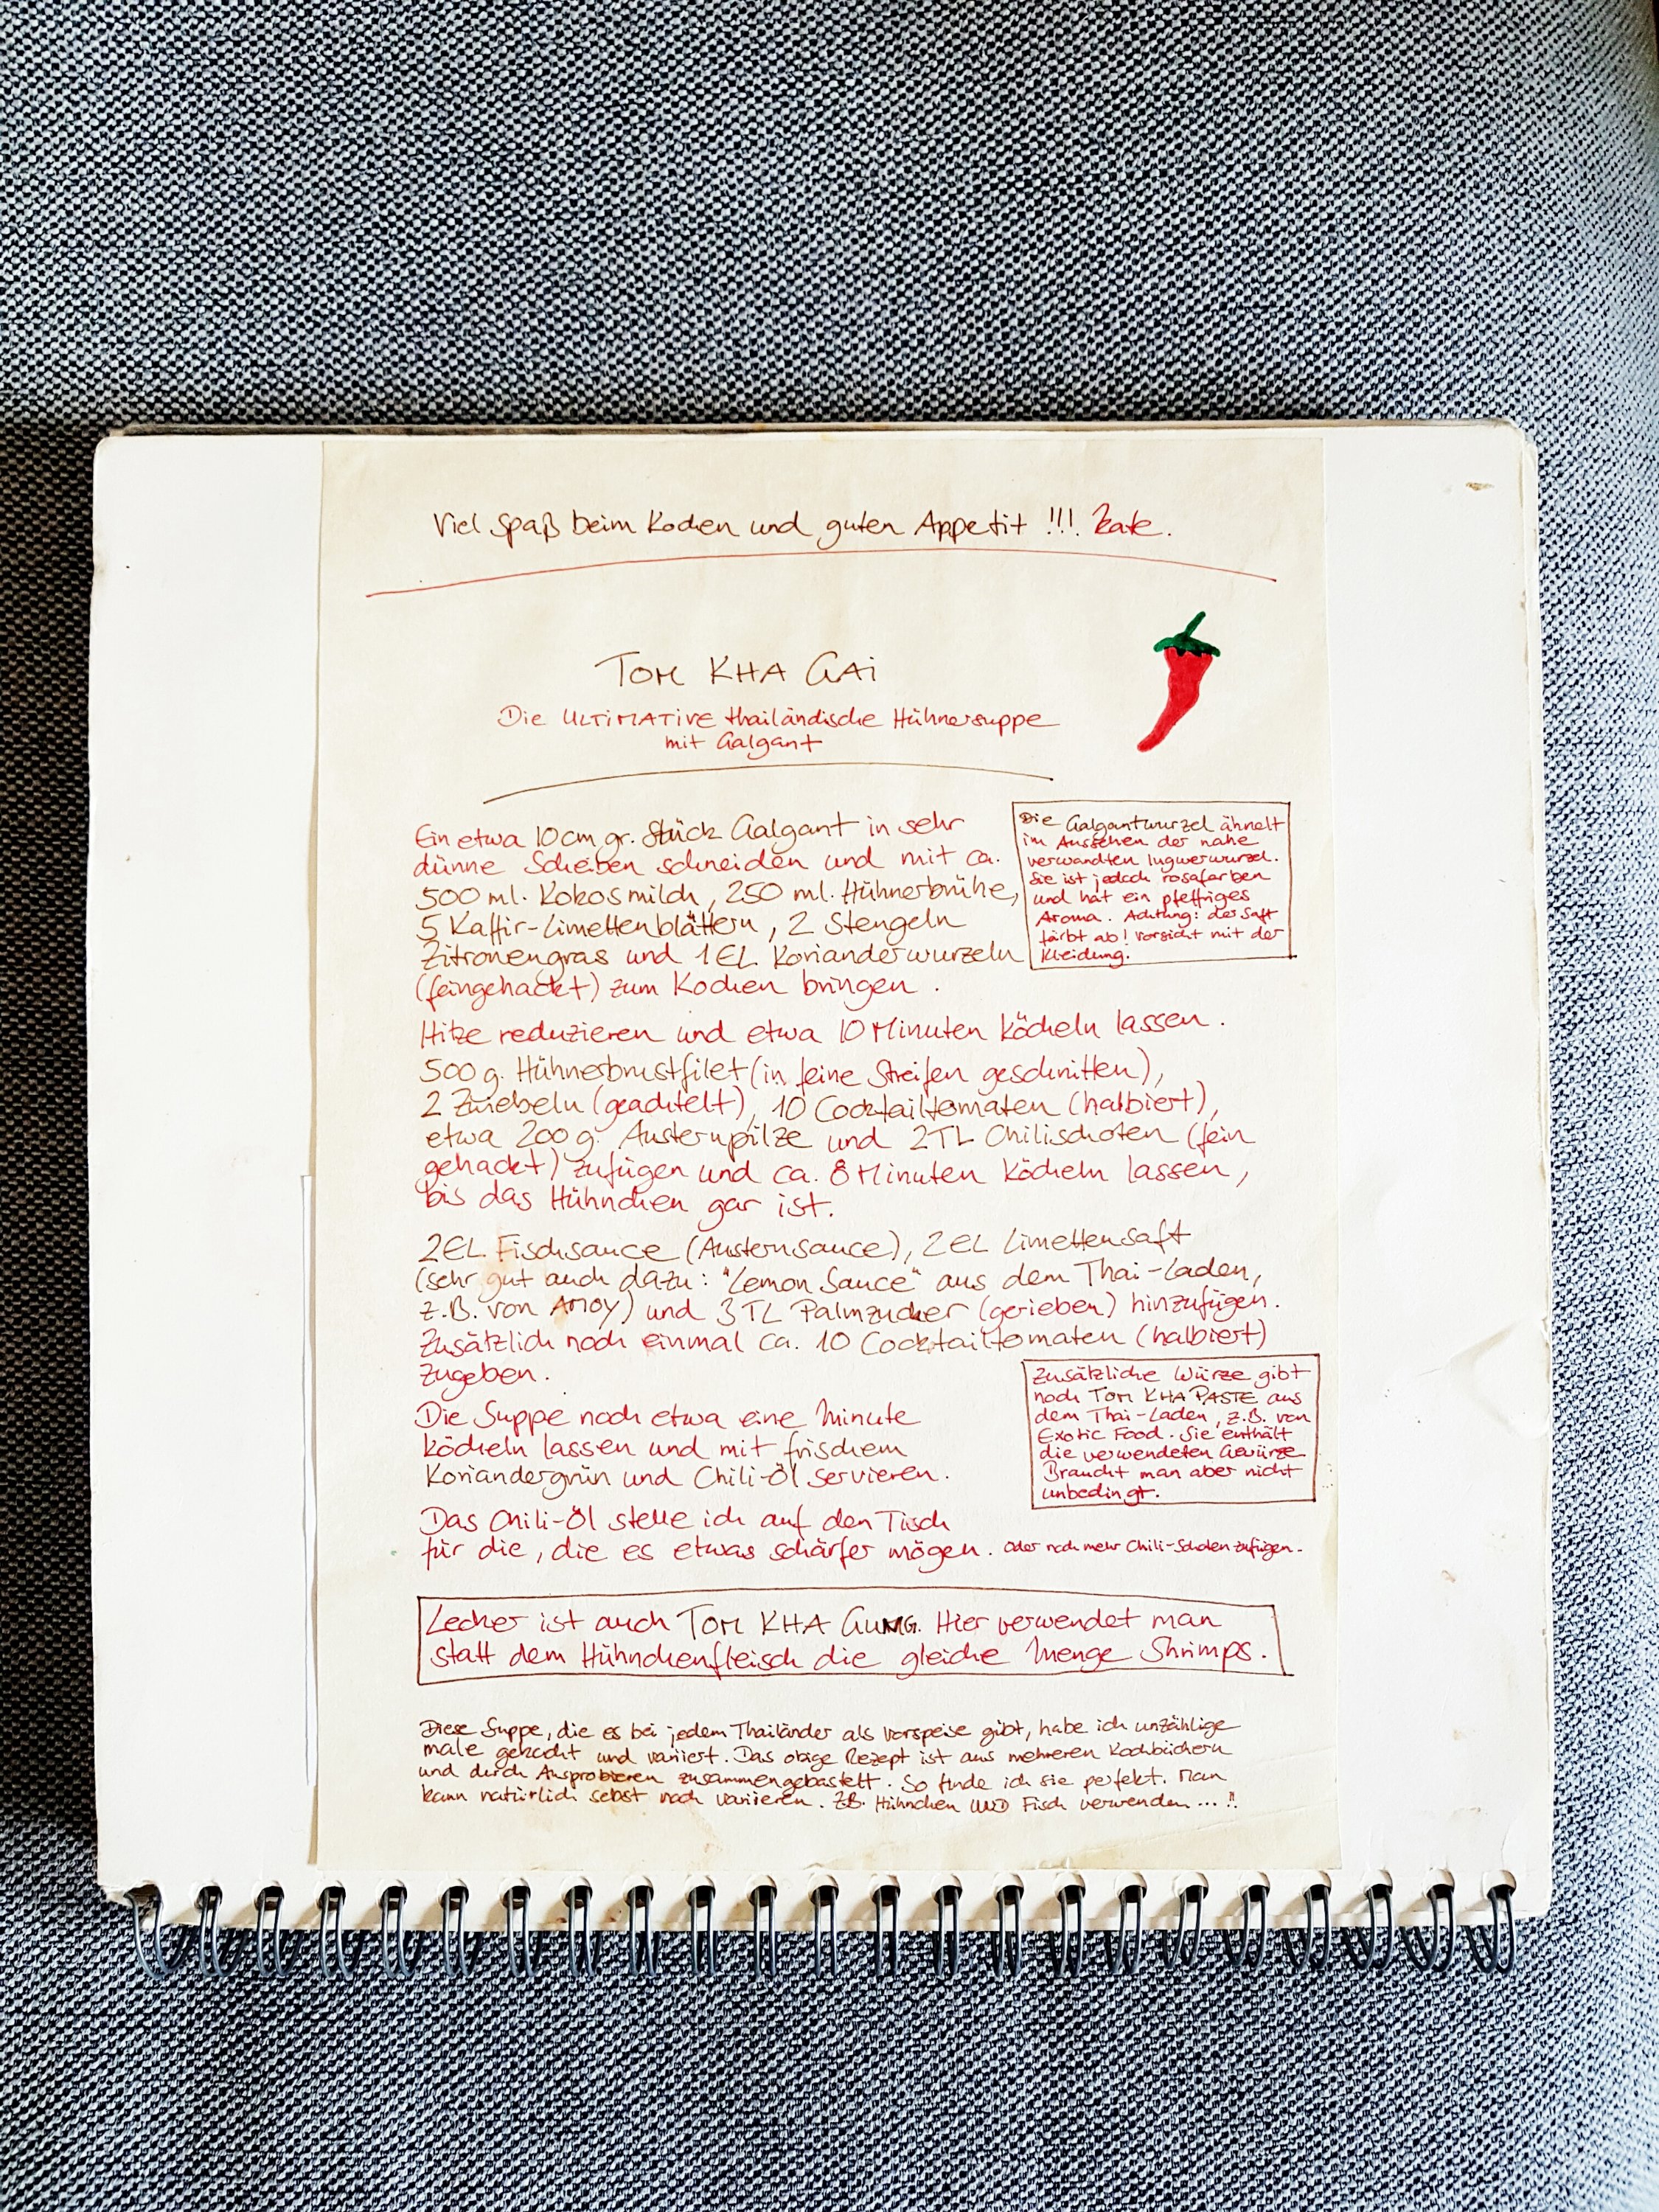 Viel Spaß beim Kochen und guten Appetit !!! Kate.
TOM KHA GAi
Die ULTiMATiVE thailändische Hühnersuppe
mit Galgant
Ein etwa 10cm gr. Stück Galgant in sehr
dünne Scheiben schneiden und mit ca.
500 ml. Kokosmilch, 250 ml. Hühnerbrühe,
5 Kaffir-Limettenblättern, 2 Stengeln
Zitronengras und 1EL. Korianderwurzeln
(feingehackt) zum Kochen bringen.
Die Galgantwurzel ähnelt
im Aussehen der nahe
verwandten Ingwerwurzel.
Sie ist jedoch rosafarben
und hat ein pfeffriges
Aroma. Achtung: der Saft
färbt ab! Vorsicht mit der
Kleidung.
Hitze reduzieren und etwa 10 Minuten köcheln lassen.
500 g. Hühnerbrustfilet (in feine Streifen geschnitten),
2 Zwiebeln (geachtelt), 10 Cocktailtomaten (halbiert),
etwa 200 g. Austernpilze und 2TL Chilischoten (fein
gehackt) zufügen und ca. 8 Minuten köcheln lassen,
bis das Hühnchen gar ist.
2EL. Fischsauce (Austernsauce), 2EL Limettensaft
(sehr gut auch dazu: "Lemon Sauce" aus dem Thai-Laden,
z.B. von AMOY) und 3TL Palmzucker (gerieben) hinzufügen.
Zusätzlich noch einmal ca. 10 Cocktailtomaten (halbiert)
zugeben.
Die Suppe noch etwa eine Minute
köcheln lassen und mit frischem
Koriandergrün und Chili-Öl servieren.
Zusätzliche Würze gibt
noch TOM KHA PASTE aus
dem Thai-Laden, z.B. von
Exotic Food. Sie enthält
die verwendeten Gewürze
Braucht man aber nicht
unbedingt.
Das Chili-Öl stelle ich auf den Tisch
für die, die es etwas schärfer mögen. Oder noch mehr Chili-Schoten zufügen.
Lecker ist auch TOM KHA GUNG. Hier verwendet man
statt dem Hühnchenfleisch die gleiche Menge Shrimps.
Diese Suppe, die es bei jedem Thailänder als Vorspeise gibt, habe ich unzählige
male gekocht und variiert. Das obige Rezept ist aus mehreren Kochbüchern
und durch Ausprobieren zusammengebastelt. So finde ich sie perfekt. Man
kann natürlich selbst noch variieren. Z.B. Hühnchen UND Fisch verwenden ... !!